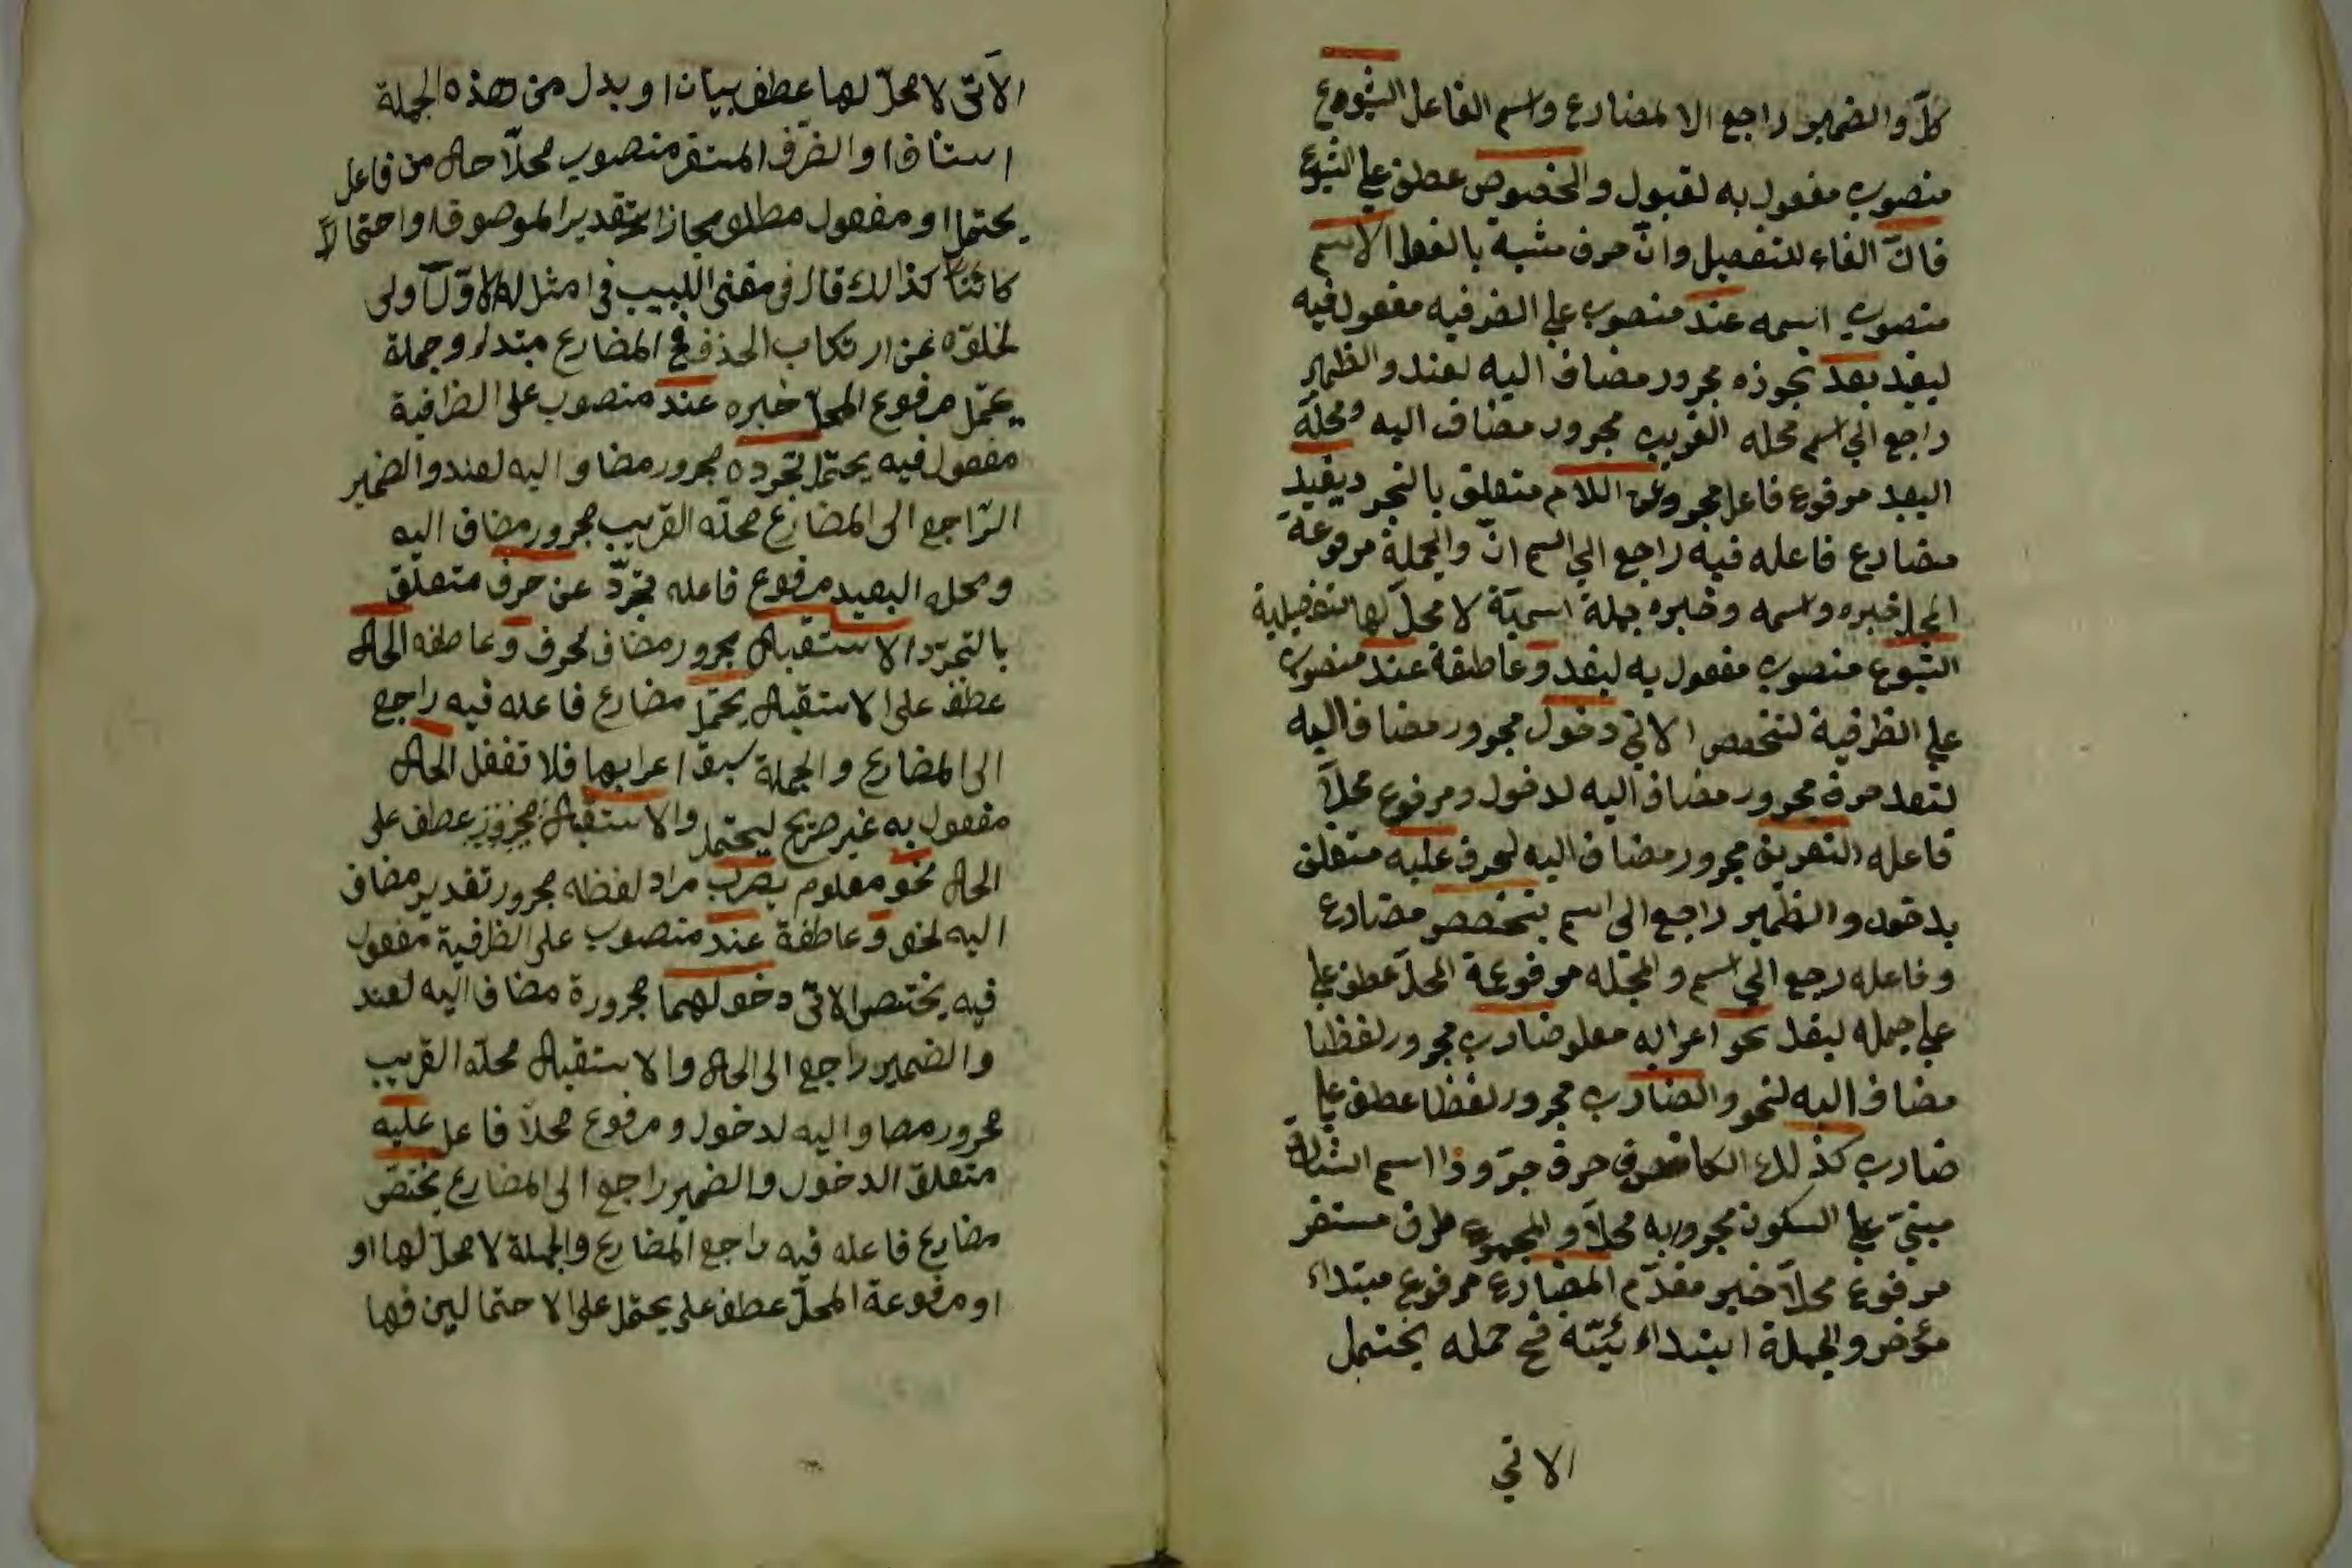 كلّ والضمير راجع الا لمضارع واسم الفاعل الشيوع
منصوب مفعول به لقبول والخصوص عطف علي الشيوع
فانّ الفاء للتفصيل وانّ حرف مشبة بالفعل الاسم
منصوب اسمه عند منصوب علي الضرفيه مفعول فيه
ليفيد بعد تجوزه مجرور مضاف اليه لعند والظمير
راجع الي اسم محله القريب مجرور مضاف اليه ومحلّه
البعيد مرفوع فاعل مجرو عن اللام متعلق بالتجرد يفيد
مضارع فاعله فيه راجع الي اسم انّ والجملة مرفوعة
المحل خبره واسمه وخبره جملة اسميّة لا محلّ لها تفصيلية
الشيوع منصوب مفعول به ليفد وعاطفة عند منصوب
علي الظرفية لتخصص الاتي دخول مجرور مضاف اليه
لتعد حرف مجرور مضاف اليه لدخول ومرفوع محلاّ
فاعله التعريف مجرور مضاف اليه لحرف عليه متعلق
بدخول والظمير راجع الي اسم يتخصص مضارع
وفاعله رجع الي اسم والجمله مرفوعة المحلّ عطف علي
علي جمله ليفد نحو اعرابه معلو ضارب مجرور لفظا
مضاف اليه لنحو والضارب مجرور لفظا عطف علي
ضارب كذلك الكاف حرف جرّ وذا اسم اشارة
مبنيّ علي السكون مجرور به محلاّ والمجموع ظرف مستقر
مرفوع محلاّ خبر مقدّم المضارع مرفوع مبتداء
مؤخر والجملة ابتداء يّئة فح جمله يحتمل
الاتي
الآتى لا محلّ لها عطف بيان او بدل من هذه الجملة
استئنافا والضّرف المستقر منصوب محلاّ حال من فاعل
يحتمل او مفعول مطلو مجازا بتقدير الموصوف او احتمالاً
كائنا كذالك قال فى مغنى اللبيب فى امثل له الاوّل اولى
لخلوّه عن ارتكاب الحذف فح المضارع مبتداء وجملة
يحتمل مرفوع المحلّ خبره عند منصوب على الظرافية
مفعول فيه يحتمل تجرده مجرور مضاو اليه لعند والضمير
الرّاجع الى المضارع محلّه القريب مجرور مضاف اليه
ومحله البعيد مرفوع فاعله تجرّد عن حرف متعلّق
بالتجرّد الاستقبال مجرور مضاف لحرف وعاطفه الحال
عطف على الاستقبال يحتمل مضارع فاعله فيه راجع
الى المضارع والجملة سبق اعرابها فلا تغفل الحال
مفعول به غير صريح ليحتمل والاستقبال مجرور عطف على
الحال نحو معلوم يضرب مراد لفظه مجرور تقدير مضاف
اليه لنحو وعاطفة عند منصوب على الظرفية مفعول
فيه يختص الاتى دخولهما مجرورة مضاف اليه لعند
والضمير راجع الى الحال والاستقبال محلّه القريب
مجرور مصاو اليه لدخول ومرفوع محلاّ فاعل عليه
متعلق الدخول والضمير راجع الى المضارع يختصّ
مضارع فاعله فيه راجع المضارع والجملة لا محلّ لها او
او مرفوعة المحلّ عطف على يحتمل على الاحتمالين فهما